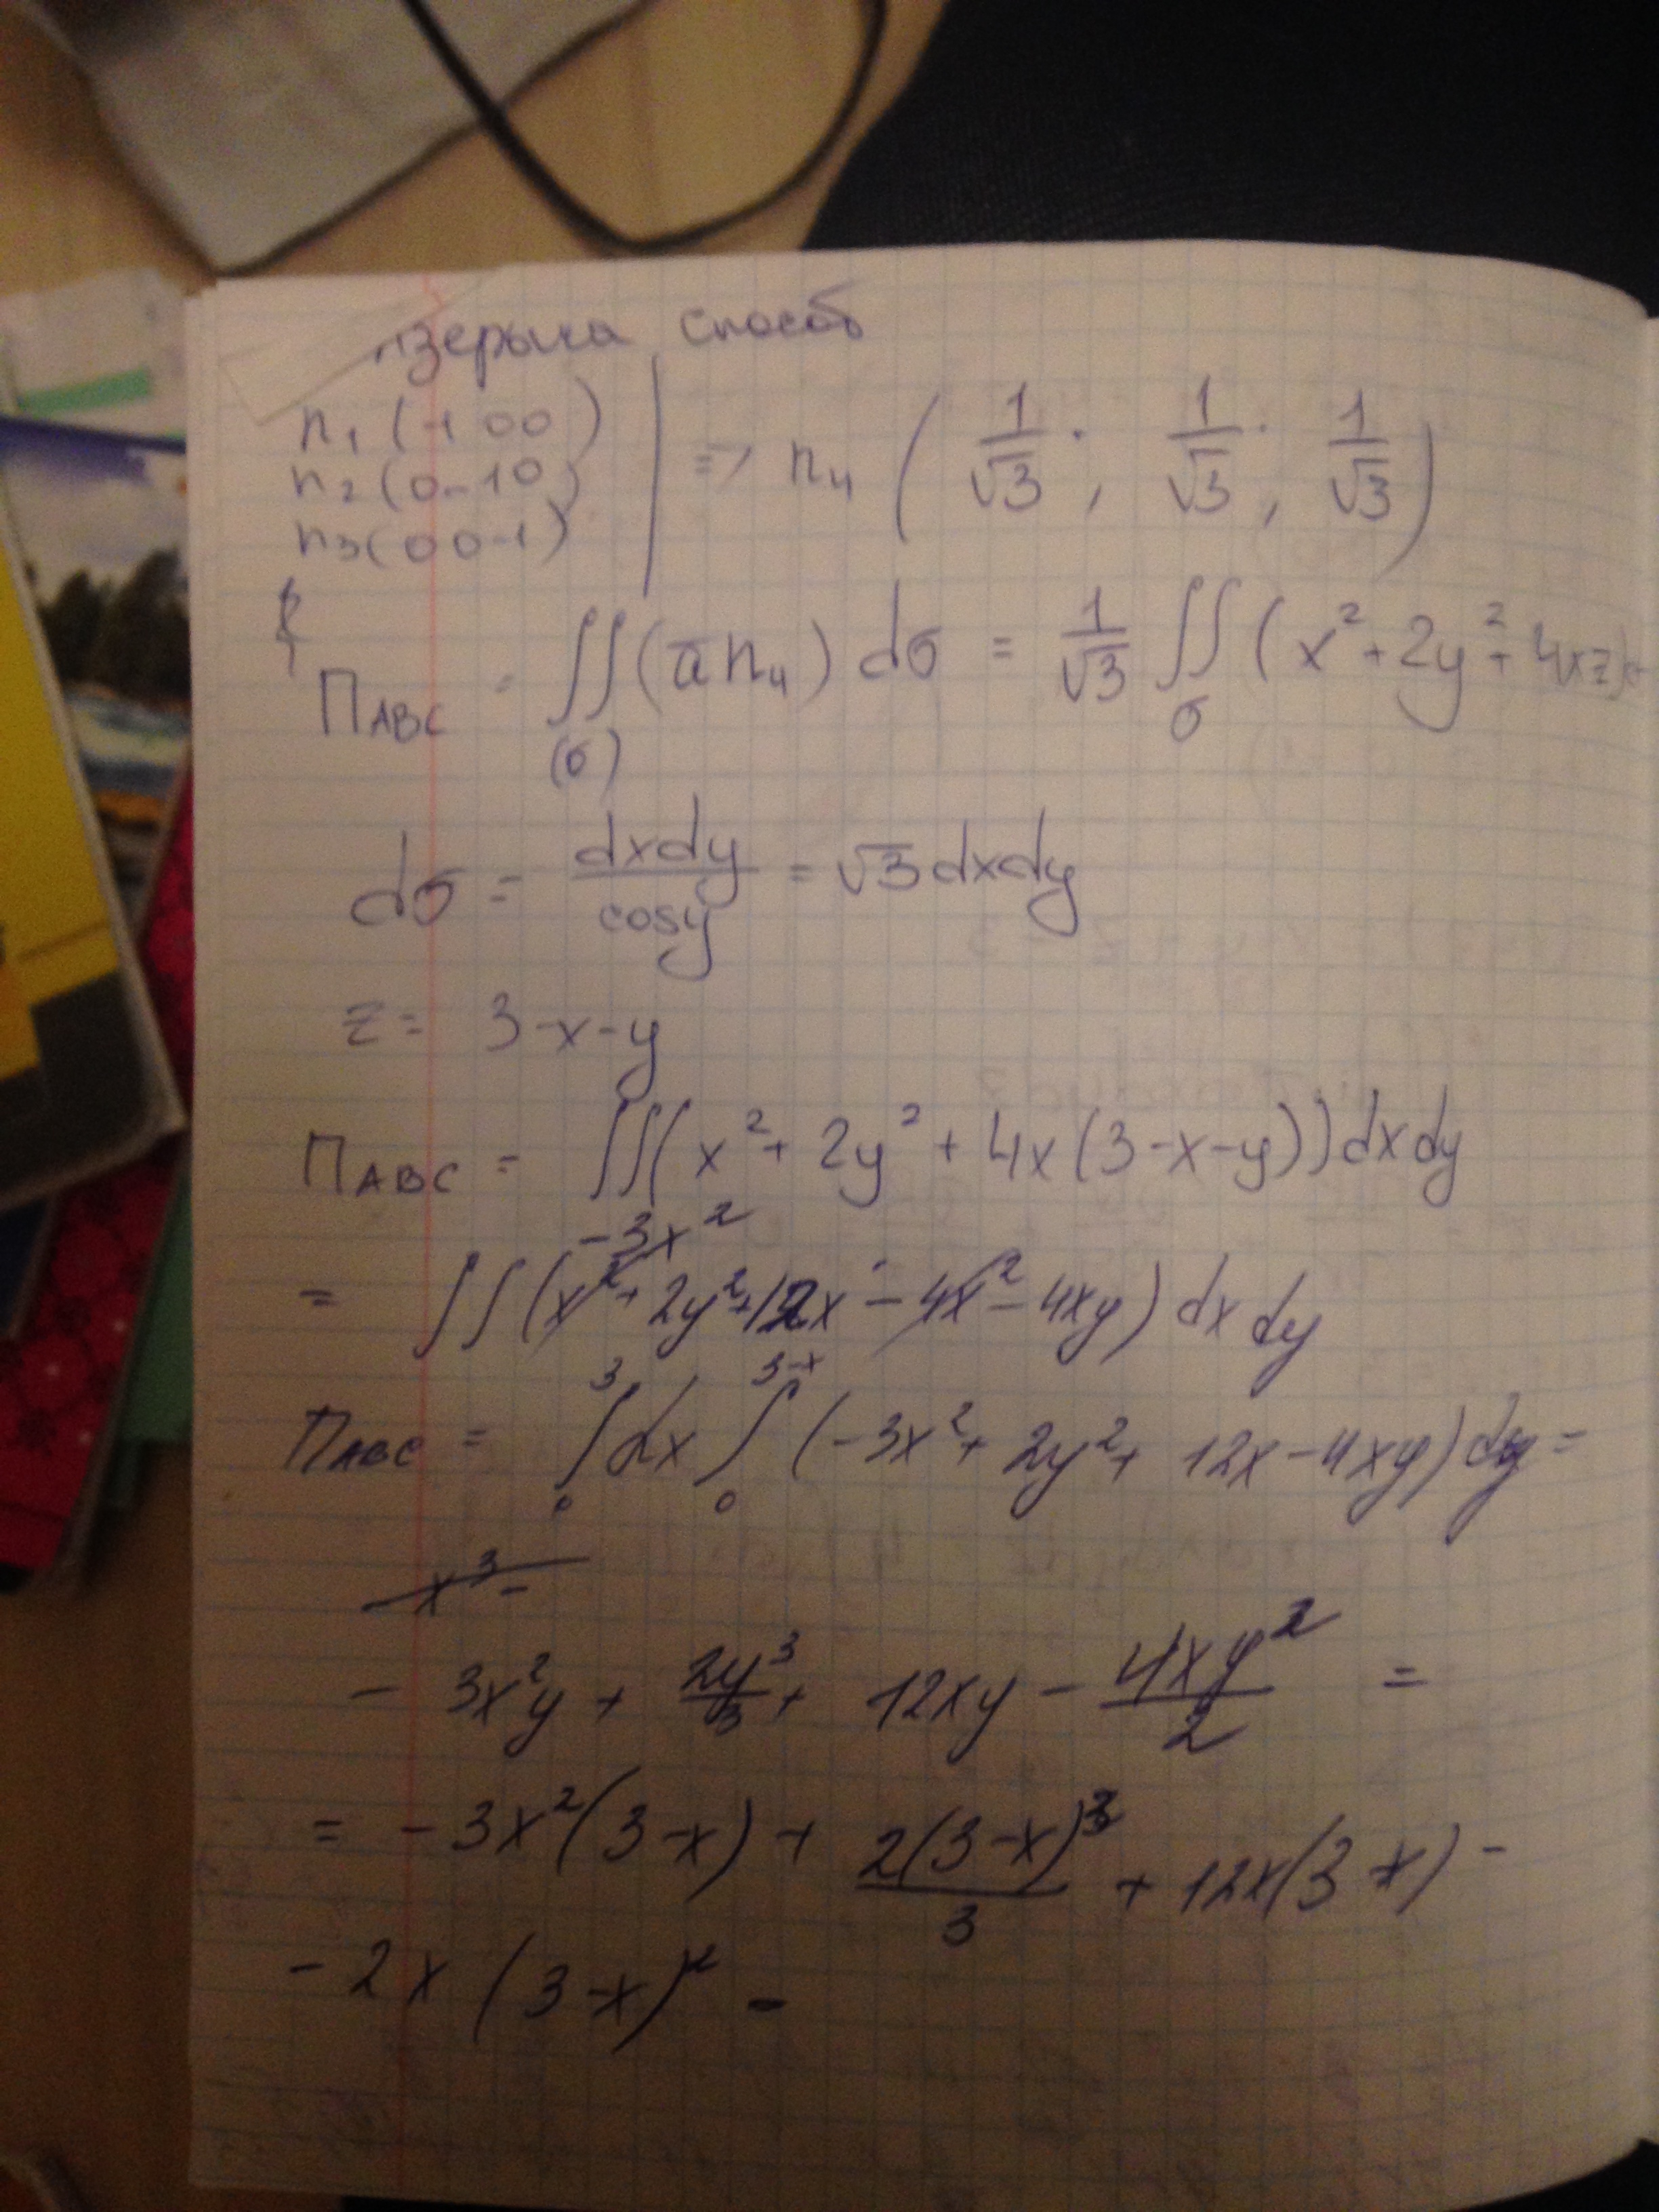 способ
n₁(-1 0 0)
n₂(0 -1 0)
n₃(0 0 -1)
=> n₄ (1/√3; 1/√3; 1/√3)
П_ABC = ∬_(σ) (a̅ n₄) dσ = 1/√3 ∬_σ (x² + 2y² + 4xz)
dσ = dxdy/cosγ = √3 dxdy
z = 3-x-y
П_ABC = ∬(x² + 2y² + 4x(3-x-y))dxdy
-3x²
= ∬(x² + 2y² + 12x - 4x² - 4xy) dx dy
П_ABC = ∫₀³ dx ∫₀³⁻ˣ (-3x² + 2y² + 12x - 4xy) dy =
x³ -
- 3x²y + 2y³/3 + 12xy - 4xy²/2 =
= -3x²(3-x) + 2(3-x)³/3 + 12x(3-x) -
- 2x (3-x)² -